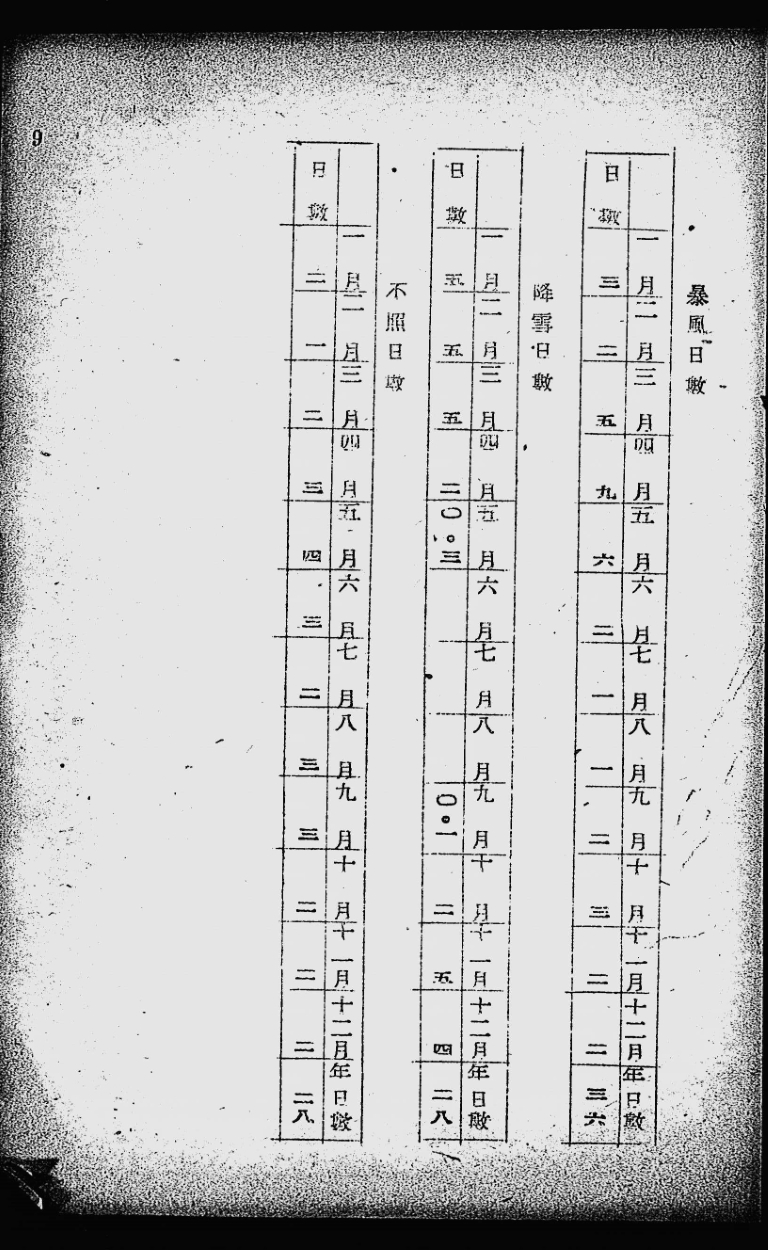 暴風日數
一月 二月 三月 四月 五月 六月 七月 八月 九月 十月 十一月 十二月 年日數
日數 三 二 五 九 六 二 一 一 二 三 二 二 三六
降雪日數
一月 二月 三月 四月 五月 六月 七月 八月 九月 十月 十一月 十二月 年日數
日數 五 五 五 二 〇。三 〇。一 二 五 四 二八
不照日數
一月 二月 三月 四月 五月 六月 七月 八月 九月 十月 十一月 十二月 年日數
日數 二 一 二 三 四 三 二 三 三 二 二 二 二八
9